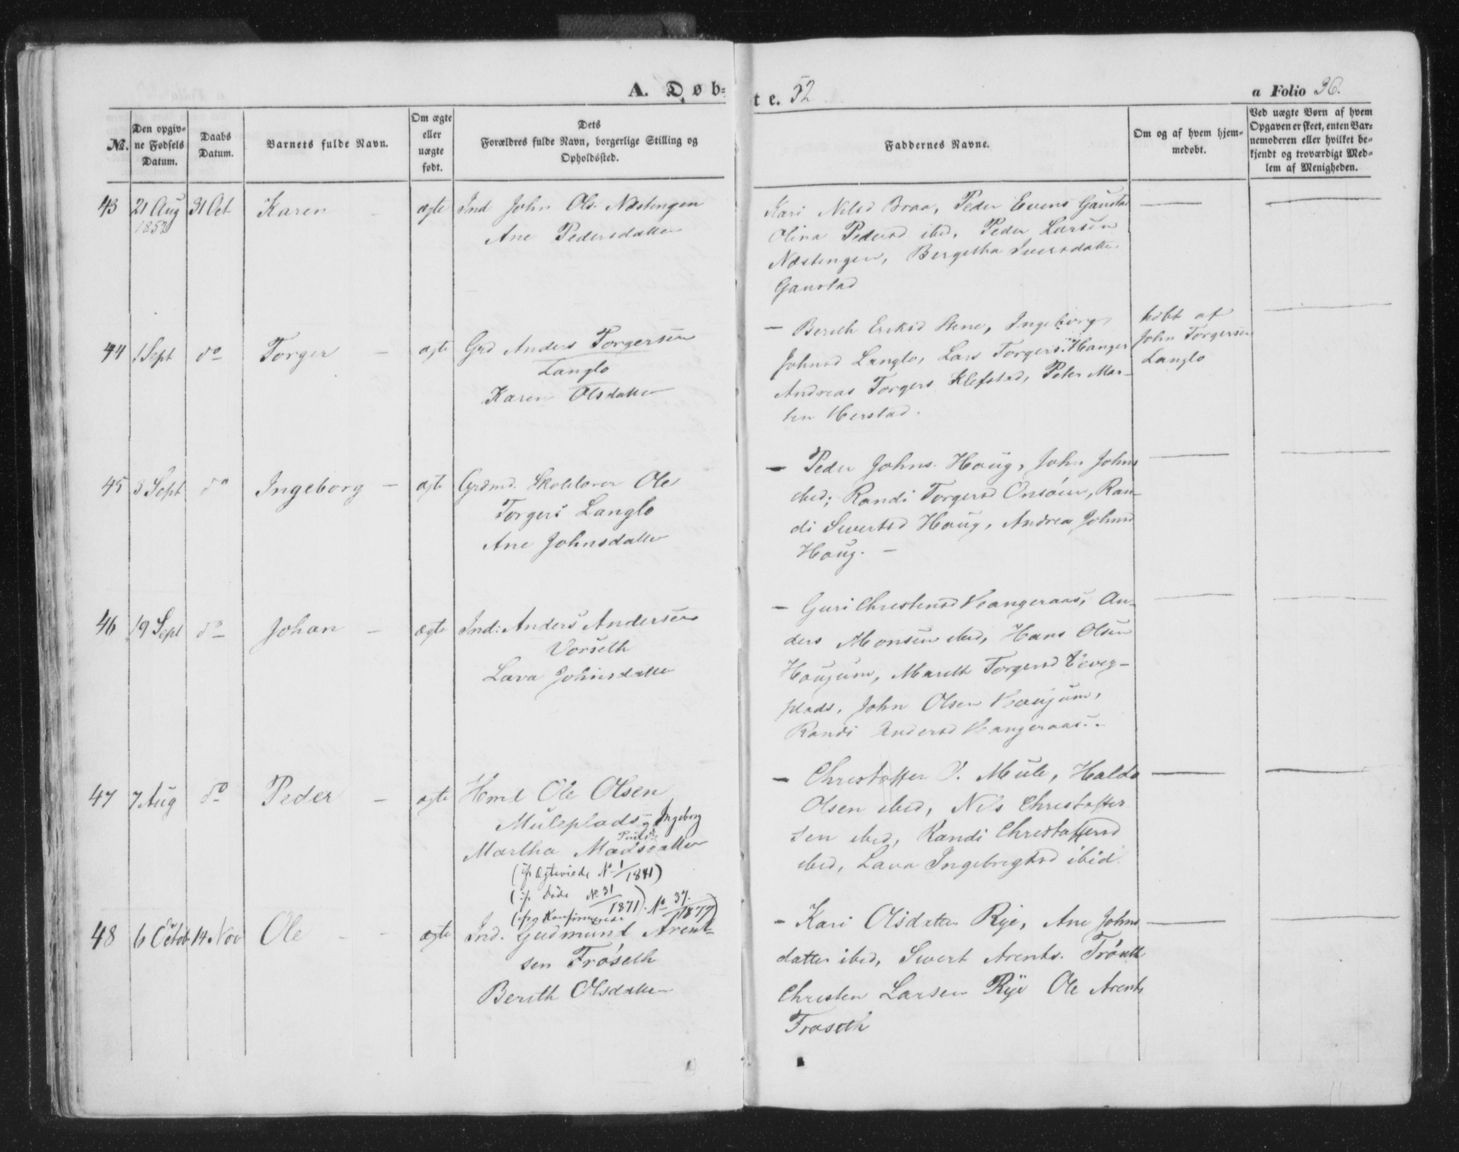 A. Døb-
te. 52
a Folio 36.
No.
Den opgiv-
ne Fødsels
Datum.
Daabs
Datum.
Barnets fulde Navn.
Om ægte
eller
uægte
født.
Dets
Forældres fulde Navn, borgerlige Stilling og
Opholdssted.
Faddernes Navne.
Om og af hvem hjem-
medøbt.
Ved uægte Børn af hvem
Opgaven er skeet, enten Bar-
nemoderen eller hvilket be-
kjendt og troværdigt Med-
lem af Menigheden.
43 21 Aug 31 Oct Karen - ægte Ind John Ols Næstengen
1852
Ane Pedersdatter
Kari Nilsd Braa, Peder Evens Gaustad
Olina Pedersd ibid, Peder Larsen
Næstengen, Bergitha Iversdatter
Gaustad
44 1 Sept do Torger - ægte Grd Anders Torgersen
Langlo
Karen Olsdatter
- Bereth Eriksd Stene, Ingeborg
Johnsd Langlo, Lars Torgers. Hanger
Andreas Torgers Klefstad, Peter Mar-
tin Herstad.
døbt af
John Torgersen
Langlo
45 3 Sept do Ingeborg - ægte Grdmd. Skolelærer Ole
Torgers Langlo
Ane Johnsdatter
- Peder Johns. Houg, John Johns
ibid; Randi Torgersd Onsøien, Ran-
di Sivertsd Houg, Andrea Johnsd
Houg. -
46 19 Sept do Johan - ægte Ind: Anders Andersen
Vorseth
Lava Johnsdatter
- Guri Christensd Hangeraas, An-
ders Monsen ibid, Hans Olsen
Houjum, Mareth Torgersd
plads, John Olsen Houjum,
Randi Andersd Hangeraas. -
47 7 Aug do Peder - ægte Hmd Ole Olsen
Muleplads og Ingeborg
Martha Madsdatter
(jfr Egteviede No 1/1841)
(jfr Døde No 31/1871)
(og Konfirmerede No 37/1877)
- Christoffer J. Mule, Haldo
Olsen ibid, Nils Christoffer
sen ibid, Randi Christoffersd
ibid, Lava Ingebrigtsd ibid.
48 6 Octob 14 Nov Ole - - ægte Ind. Gudmund Arent-
sen Frøseth
Berith Olsdatter
- Kari Olsdatter Rye, Ane Johns
datter ibid, Sivert Arents. Frøseth
Christen Larsen Rye Ole Arents
Frøseth